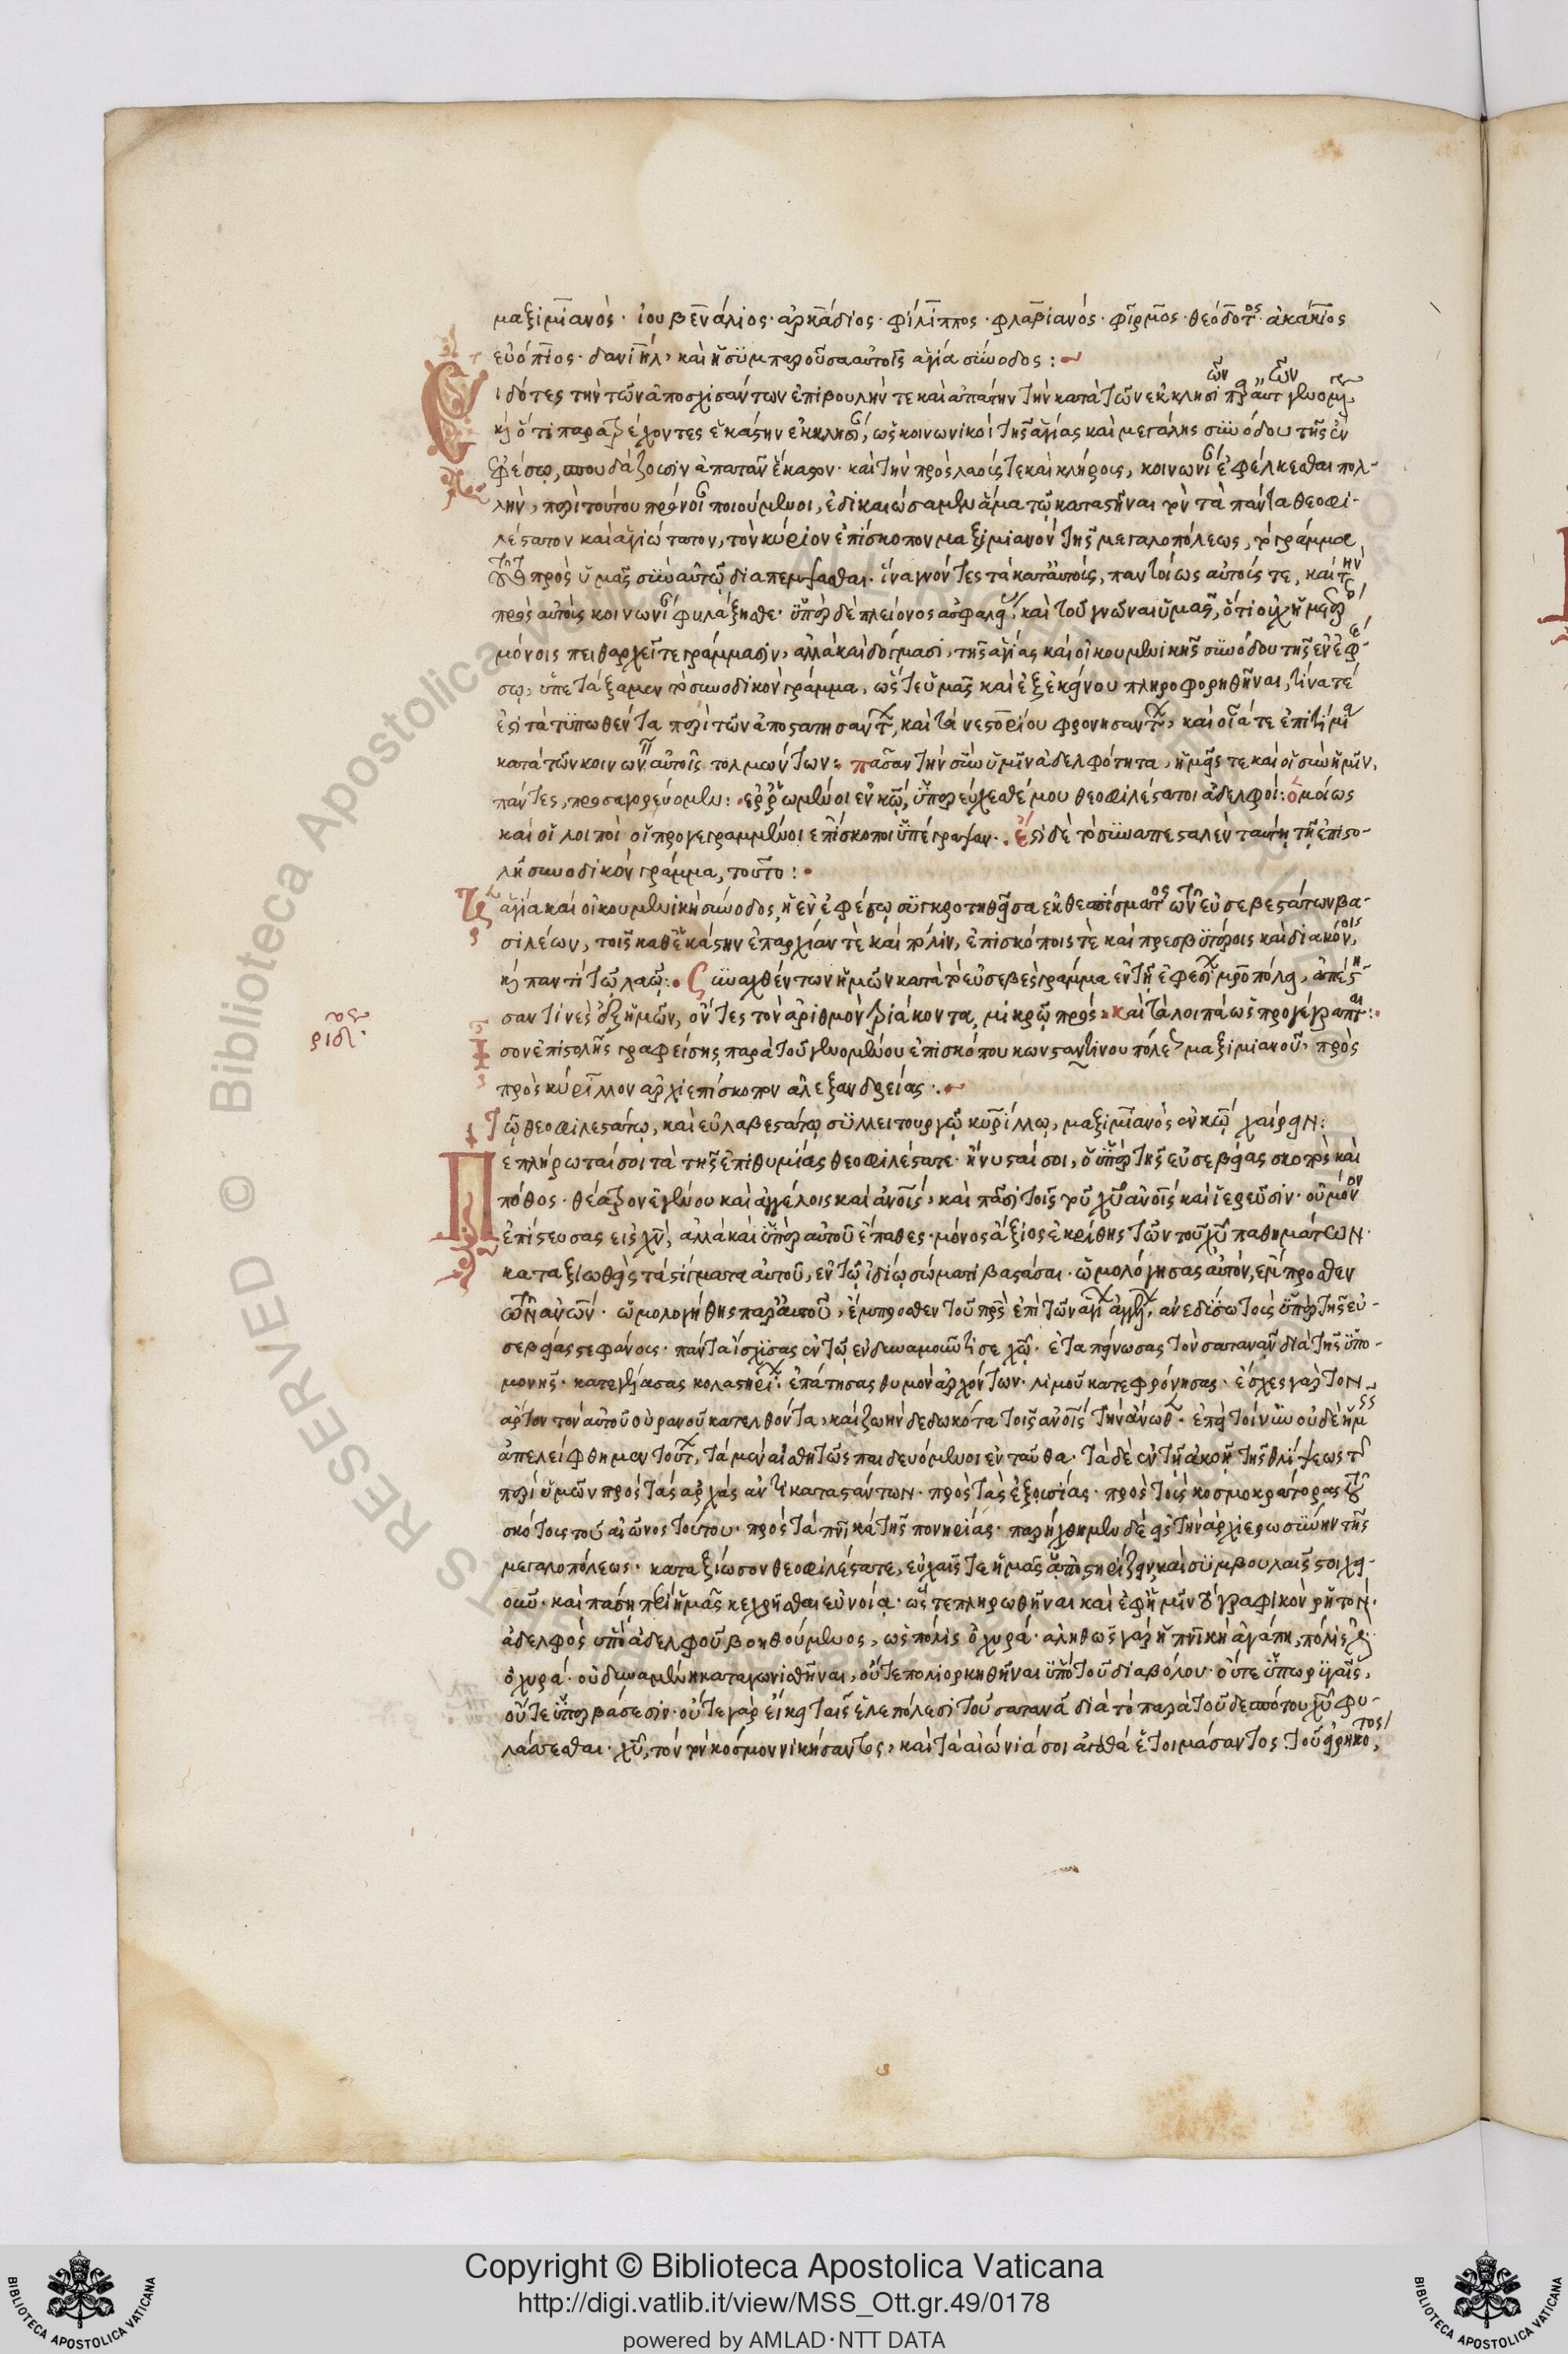 μαξιμιανὸς · ἰουβενάλιος · ἀρκάδιος · φίλιππος · φλαβιανός · φίρμος · θεόδοτος · ἀκάκιος
εὐόπιος · δανιήλ, καὶ ἡ συμπαροῦσα αὐτοῖς ἁγία σύνοδος :
Εἰδότες τὴν τῶν ἀποσχισάντων ἐπιβουλήν τε καὶ ἀπάτην τὴν κατὰ τῶν ἐκκλησιῶν
κ ὅτι παρατρέχοντες ἑκάστην ἐκκλησί, ὡς κοινωνικοὶ τῆς ἁγίας καὶ μεγάλης συνόδου τῆς ἐν
ἐφέσῳ, σπουδάζουσιν ἀπατᾶν ἕκαστον · καὶ τὴν πρὸς λαούς τε καὶ κλήρους, κοινωνί ἐφέλκεσθαι πολ-
λὴν, περὶ τούτου πρόνοι ποιούμενοι, ἐδικαιώσαμεν ἅμα τῷ καταστῆναι τὸν τὰ πάντα θεοφι-
λέστατον καὶ ἁγιώτατον, τὸν κύριον ἐπίσκοπον μαξιμιανὸν τῆς μεγαλοπόλεως, τὸ γράμμα
τοῦτο πρὸς ὑμᾶς σὺν αὐτῷ διαπέμψασθαι · ἵνα γνόντες τὰ κατ' αὐτούς, παντοίως αὐτούς τε, καὶ τὴν
πρὸς αὐτοὺς κοινωνί φυλάξησθε · ὑπὲρ δὲ πλείονος ἀσφαλεί, καὶ τοῦ γνῶναι ὑμᾶς, ὅτι οὐχ ἡμετέρο
μόνοις πειθαρχεῖτε γράμμασιν, ἀλλὰ καὶ δόγμασι, τῆς ἁγίας καὶ οἰκουμενικῆς συνόδου τῆς ἐν ἐφέ
σῳ, ὑπετάξαμεν τὸ συνοδικὸν γράμμα, ὥστε ὑμᾶς καὶ ἐξ ἐκείνου πληροφορηθῆναι, τίνα τέ
ἐστι τὰ τυπωθέντα περὶ τῶν ἀποστατησάντ, καὶ τὰ νεστορίου φρονησάντ, καὶ οἷά τε ἐπιτίμια
κατὰ τῶν κοινων αὐτοῖς τολμώντων : πᾶσαν τὴν σὺν ὑμῖν ἀδελφότητα, ἡμεῖς τε καὶ οἱ σὺν ἡμῖν,
πάντες, προσαγορεύομεν : ἐρρωμένοι ἐν κῷ, ὑπερεύχεσθέ μου θεοφιλέστατοι ἀδελφοί : ὁμοίως
καὶ οἱ λοιποὶ οἱ προγεγραμμένοι ἐπίσκοποι ὑπέγραψαν · ἔστι δὲ τὸ συναπεσταλὲν ταύτῃ τῇ ἐπιστο-
λῇ συνοδικὸν γράμμα, τοῦτο :
Ἡ ἁγία καὶ οἰκουμενικὴ σύνοδος, ἡ ἐν ἐφέσῳ συγκροτηθεῖσα ἐκ θεσπίσματος τῶν εὐσεβεστάτων βα-
σιλέων, τοῖς καθ' ἑκάστην ἐπαρχίαν τὲ καὶ πόλιν, ἐπισκόποις τὲ καὶ πρεσβυτέροις καὶ διακόνοις,
κ παντὶ τῷ λαῷ : Συναχθέντων ἡμῶν κατὰ τὸ εὐσεβὲς γράμμα ἐν τῇ ἐφεσί μροπόλει, ἀπέστη
σαν τινὲς ἐξ ἡμῶν, ὄντες τὸν ἀριθμὸν τριάκοντα, μικρῷ πρός : καὶ τὰ λοιπὰ ὡς προγέγραπται :
ἴσον ἐπιστολῆς γραφείσης παρὰ τοῦ γενομένου ἐπισκόπου κωνσταντίνου πόλε μαξιμιανοῦ, πρὸς
πρὸς κύριλλον ἀρχιεπίσκοπον ἀλεξανδρείας :
Τῷ θεοφιλεστάτῳ, καὶ εὐλαβεστάτῳ συλλειτουργῷ κυρίλλῳ, μαξιμιανὸς ἐν κῷ χαίρειν :
Πεπλήρωταί σοι τὰ τῆς ἐπιθυμίας θεοφιλέστατε · ἤνυσταί σοι, ὁ ὑπὲρ τῆς εὐσεβείας σκοπὸς καὶ
πόθος · θέατρον ἐγένου καὶ ἀγγέλοις καὶ ἀνοῖς, καὶ πᾶσι τοῖς τοῦ χῦ ἀνοῖς καὶ ἱερεῦσιν · οὐ μόνον
ἐπίστευσας εἰς χν, ἀλλὰ καὶ ὑπὲρ αὐτοῦ ἔπαθες · μόνος ἄξιος ἐκρίθης τῶν τοῦ χῦ παθημάτων ·
καταξιωθεὶς τὰ στίγματα αὐτοῦ, ἐν τῷ ἰδίῳ σώματι βαστάσαι · ὡμολόγησας αὐτὸν, ἔμπροσθεν
τῶν ἀνῶν · ὡμολογήθης παρ' αὐτοῦ, ἔμπροσθεν τοῦ πρς ἐπὶ τῶν ἁγί ἀγγέλ, ἀνεδήσω τοὺς ὑπὲρ τῆς εὐ-
σεβείας στεφάνους · πάντα ἰσχύσας ἐν τῷ ἐνδυναμοῦντί σε χῷ · ἐταπείνωσας τὸν σατανᾶν διὰ τῆς ὑπο-
μονῆς · κατεγέλασας κολαστηρί · ἐπάτησας θυμὸν ἀρχόντων · λιμοῦ κατεφρόνησας · ἔσχες γὰρ τὸν
ἄρτον τὸν αὐτοῦ οὐρανοῦ κατελθόντα, καὶ ζωὴν δεδωκότα τοῖς ἀνοῖς τὴν ἄνωθ · ἐπεὶ τοίνυν οὐδὲ ἡμεῖς
ἀπελείφθημεν τούτ, τὰ μὲν αἰσθητῶς παιδευόμενοι ἐνταῦθα · τὰ δὲ ἐν τῇ ἀκοῇ τῆς θλίψεως τ
περὶ ὑμῶν πρὸς τὰς ἀρχὰς ἀντικαταστάντων · πρὸς τὰς ἐξουσίας · πρὸς τοὺς κοσμοκράτορας τοῦ
σκότους τοῦ αἰῶνος τούτου · πρὸς τὰ πνικὰ τῆς πονηρίας · παρήχθημεν δὲ εἰς τὴν ἀρχιερωσύνην τῆς
μεγαλοπόλεως · καταξίωσον θεοφιλέστατε, εὐχαῖς τε ἡμᾶς ὑποστηρίζειν, καὶ συμβουλαῖς στοιχει-
οῦν · καὶ πάσῃ περὶ ἡμᾶς κεχρῆσθαι εὐνοίᾳ · ὥστε πληρωθῆναι καὶ ἐφ' ἡμῖν τὸ γραφικὸν ῥητόν ·
ἀδελφὸς ὑπὸ ἀδελφοῦ βοηθούμενος, ὡς πόλις ὀχυρά · ἀληθῶς γὰρ ἡ πνικὴ ἀγάπη, πόλις
ὀχυρά · οὐ δυναμένη καταγωνισθῆναι, οὔτε πολιορκηθῆναι ὑπὸ τοῦ διαβόλου · οὔτε ὑπωρυγαῖς,
οὔτε ὑπερβάσεσιν · οὔτε γὰρ εἴκει ταῖς ἑλεπόλεσι τοῦ σατανᾶ διὰ τὸ παρὰ τοῦ δεσπότου χῦ φυ-
λάττεσθαι · χῦ, τὸν τὸν κόσμον νικήσαντος, καὶ τὰ αἰώνιά σοι ἀγαθὰ ἑτοιμάσαντος · τοῦ εἰρηκότος,
Copyright © Biblioteca Apostolica Vaticana
http://digi.vatlib.it/view/MSS_Ott.gr.49/0178
powered by AMLAD·NTT DATA
BIBLIOTECA APOSTOLICA VATICANA
BIBLIOTECA APOSTOLICA VATICANA